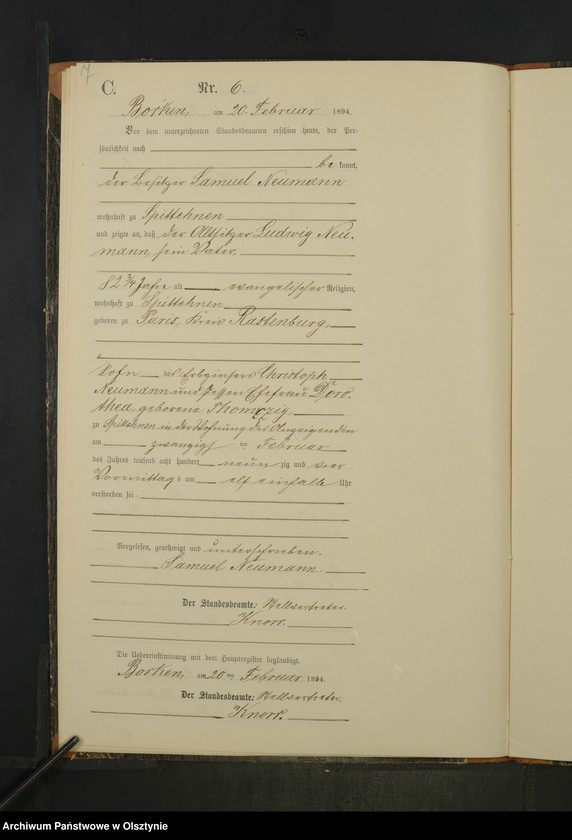 7
C.
Nr. 6.
Borken, am 20. Februar 1894.
Vor dem unterzeichneten Standesbeamten erschien heute, der Per-
sönlichkeit nach
be kannt,
der Besitzer Samuel Neumann
wohnhaft zu Spittehnen
und zeigte an, daß der Altsitzer Ludwig Neu-
mann, sein Vater,
82 3/4 Jahre alt evangelischer Religion,
wohnhaft zu Spittehnen
geboren zu Paris, Kreis Rastenburg,
Sohn des Christoph
Neumann und dessen Ehefrau Doro-
thea, geborene Thomzig,
zu Spittehnen in der Wohnung des Anzeigenden
am zwanzigsten Februar
des Jahres tausend acht hundert neun zig und vier
Vormittags um elf einhalb Uhr
verstorben sei.
Vorgelesen, genehmigt und unterschrieben.
Samuel Neumann
Der Standesbeamte: Stellvertreter.
Knorr.
Die Uebereinstimmung mit dem Hauptregister beglaubigt.
Borken, am 20ten Februar 1894.
Der Standesbeamte: Stellvertreter.
Knorr.
Archiwum Państwowe w Olsztynie